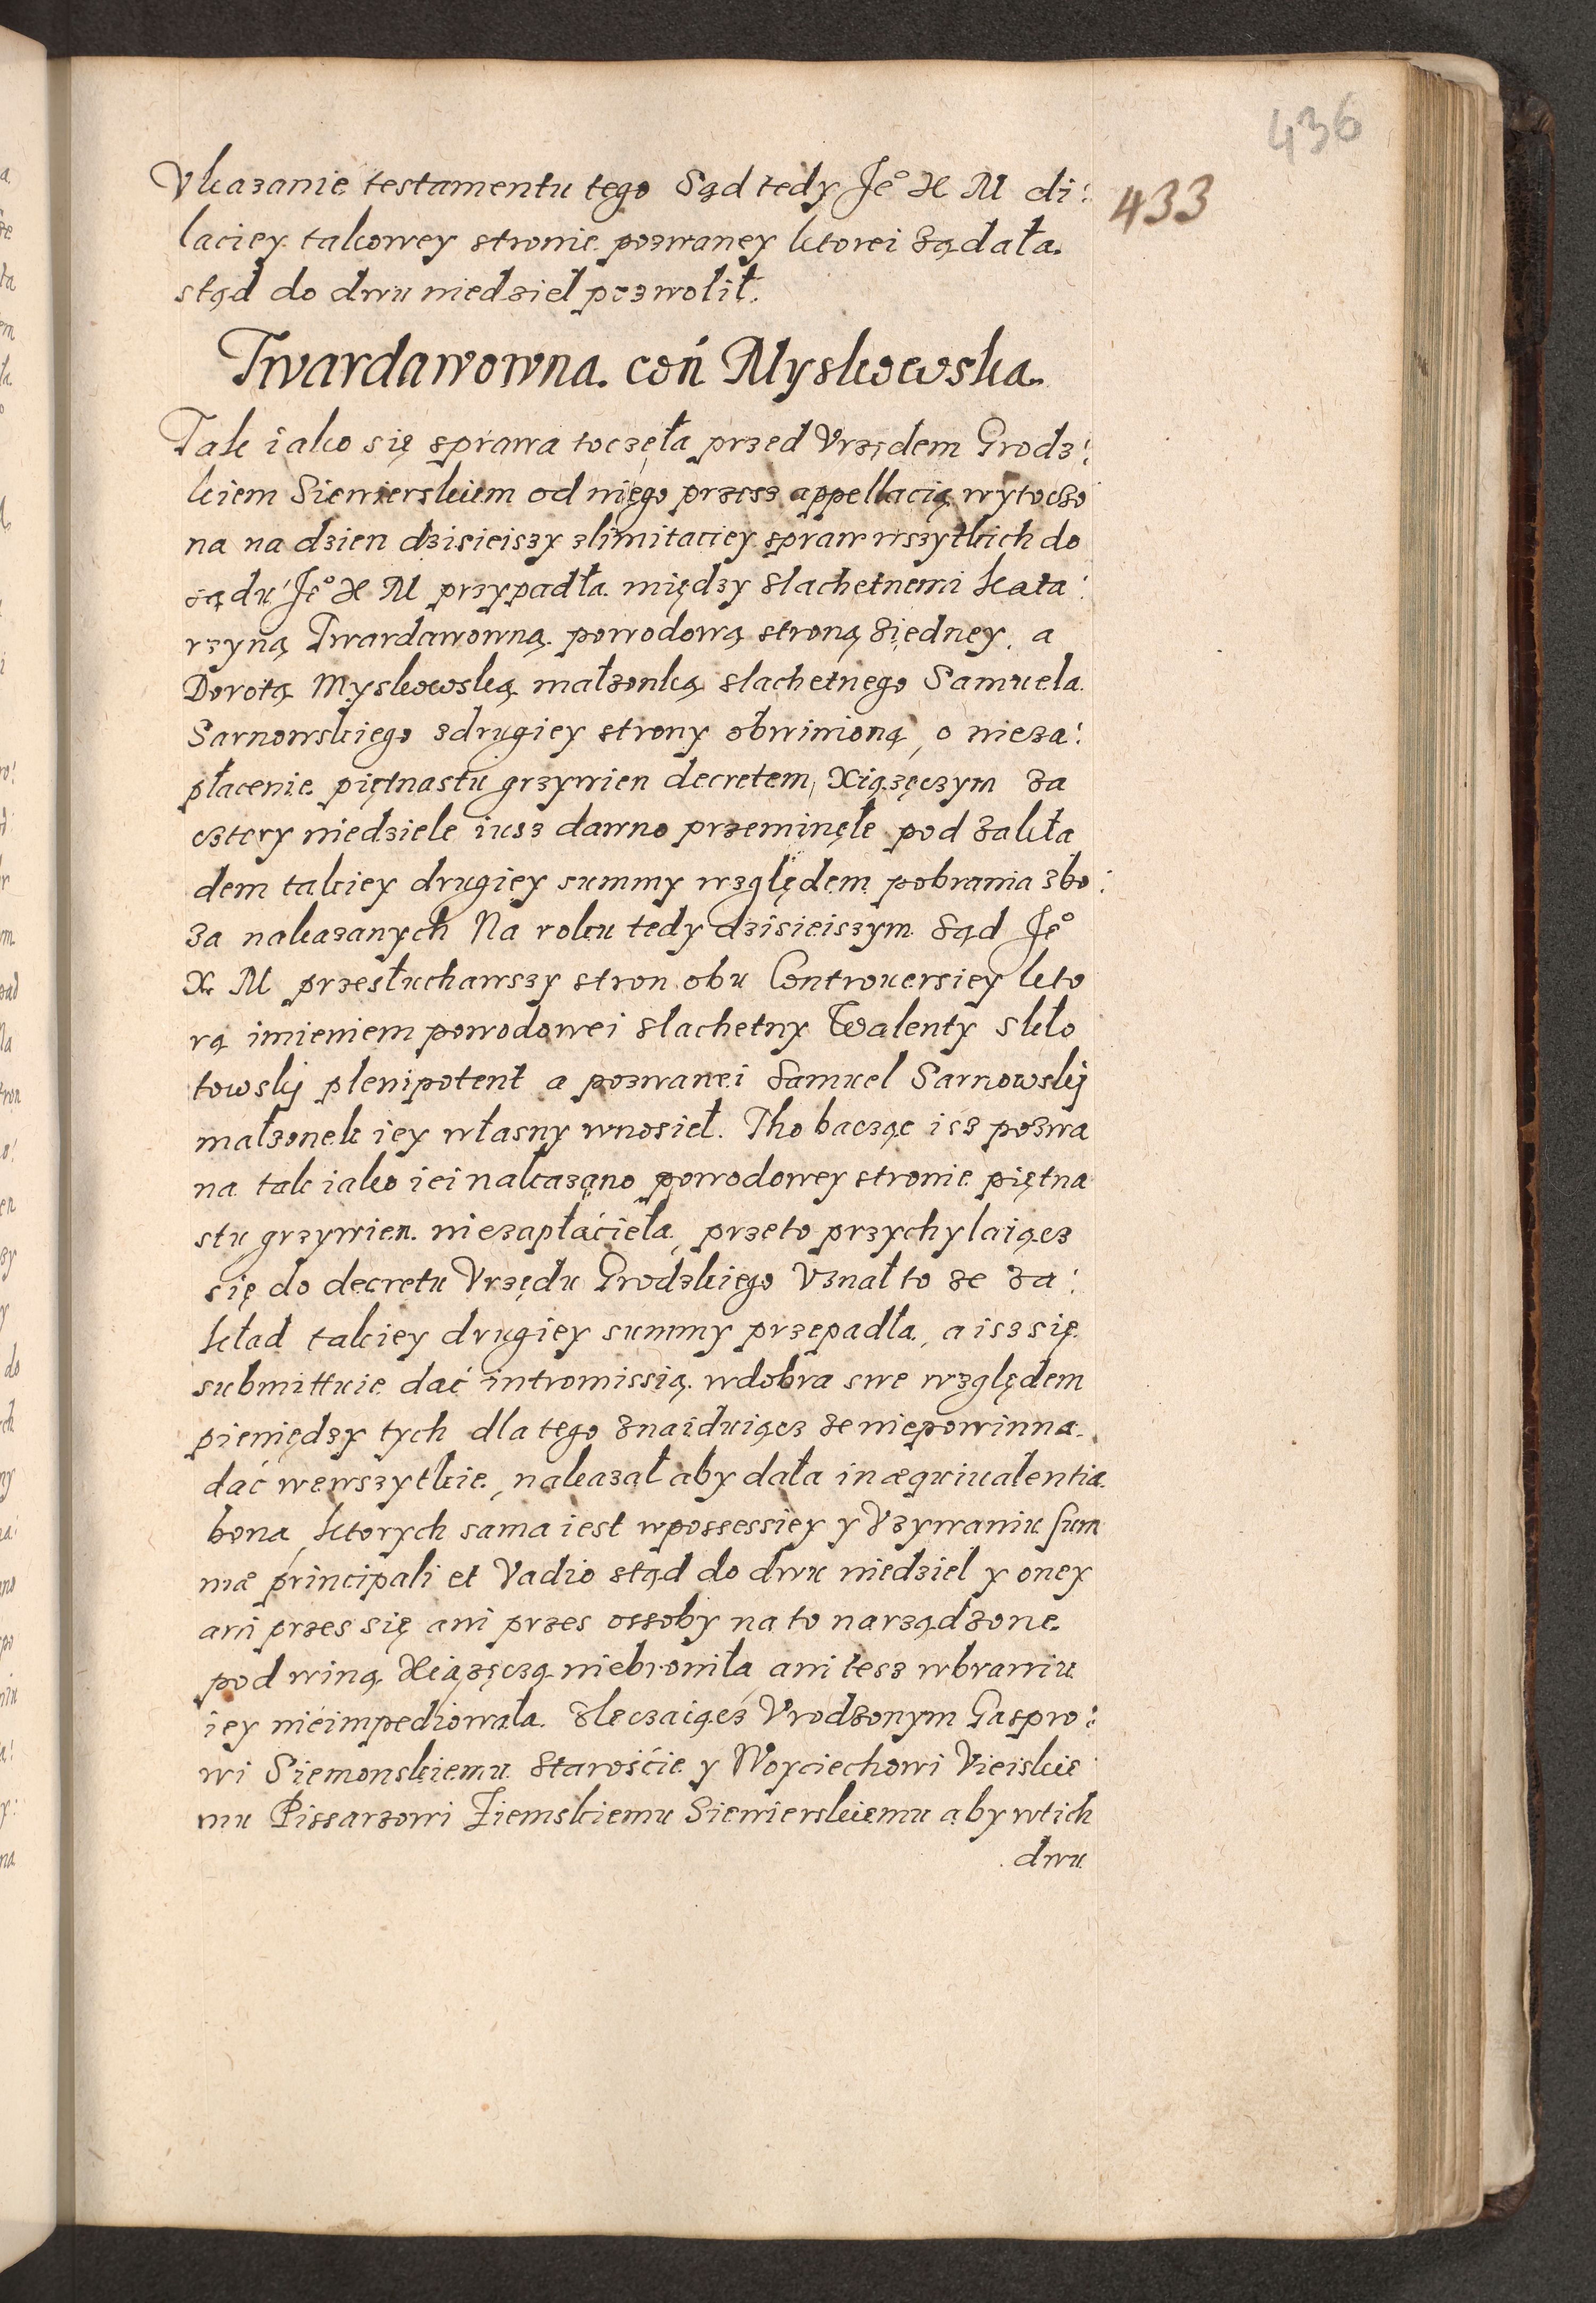 436
433
Vkazanie testamentu tego Sąd tedy Je° X M di:
laciey takowey stronie pozwaney ktorei ządała.
stąd do dwu niedziel pozwolił.
Twardawowna. coń Myskowska.
Tak iako się sprawa toczęła przed Vrzędem Grodz:
kiem Siewierskiem od niego przesz appellacią wytoczo
na na dzien dzisieiszy zlimitaciey spraw wszytkich do
sądu Je° X M przypadła między slachetnemi Kata:
rzyną Twardawowną powodową stroną ziedney, a
Dorotą Myskowską małzonką slachetnego Samuela
Sarnowskiego zdrugiey strony obwinioną, o nieza:
płacenie piętnastu grzywien decretem Xiązęczym za
cztery niedziele iusz dawno przeminęłe pod zakła
dem takiey drugiey summy względem pobrania zbo:
za nakazanych Na roku tedy dzisieiszym Sąd Je°
X M przesłuchawszy stron obu Controuersiey kto
rą imieniem powodowei slachetny Walenty skło
towskj plenipotent a pozwanei Samuel Sarnowskj
małzonek iey własny wnosieł. Tho bacząc isz pozwa
na tak iako iei nakazano powodowey stronie piętna
stu grzywien niezapłacieła, przeto przychylaiącz
się do decretu Vrzędu Grodzkiego Vznał to ze za:
kład takiey drugiey summy przepadła, a isz się
submittuie dać intromissią wdobra swe względem
pieniędzy tych dla tego znaiduiącz ze niepowinna
dać wewszytkie, nakazał aby dała in æquiualentia
bona ktorych sama iest wpossessiey y Vzywaniu sum
mæ principali et Vadio stąd do dwu niedziel y oney
ani przes się ani przes ossoby na to narządzone
pod winą Xiązęczą niebroniła ani tesz wbraniu
iey nieimpediowała. zleczaiącz Vrodzonym Gaspro:
wi Siemonskiemu Starosćie y Woyciechowi Vieiskie
mu Pissarzowi Ziemskiemu Siewierskiemu aby wtich
dwu